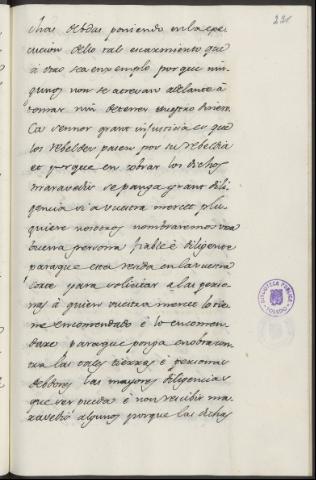 221
chas debdas poniendo en la exe
cucion dello tal escarmiento que
á otro sea enxemplo porque nin
gunos non se atrevan adelante á
tomar nin detener vuestro dinero
Ca sennor grant injusticia es que
los rebeldes pasen por su rebeldia
et porque en cobrar los dichos
maravedis se ponga grant dili
gencia si a vuestra mercet plu
guiere nosotros nombraremos una
buena persona fiable é diligente
paraque esta resida en la vuestra
corte para solicitar a las perso
nas á quien vuestra mercet lo tie
ne encomendado é lo encomen
dare paraque ponga en obra con
tra las tales tierras é personas
debdores las mayores diligencias
que ser pueda é non rescibir ma
ravedis algunos porque las dichas
BIBLIOTECA PUBLICA
TOLEDO